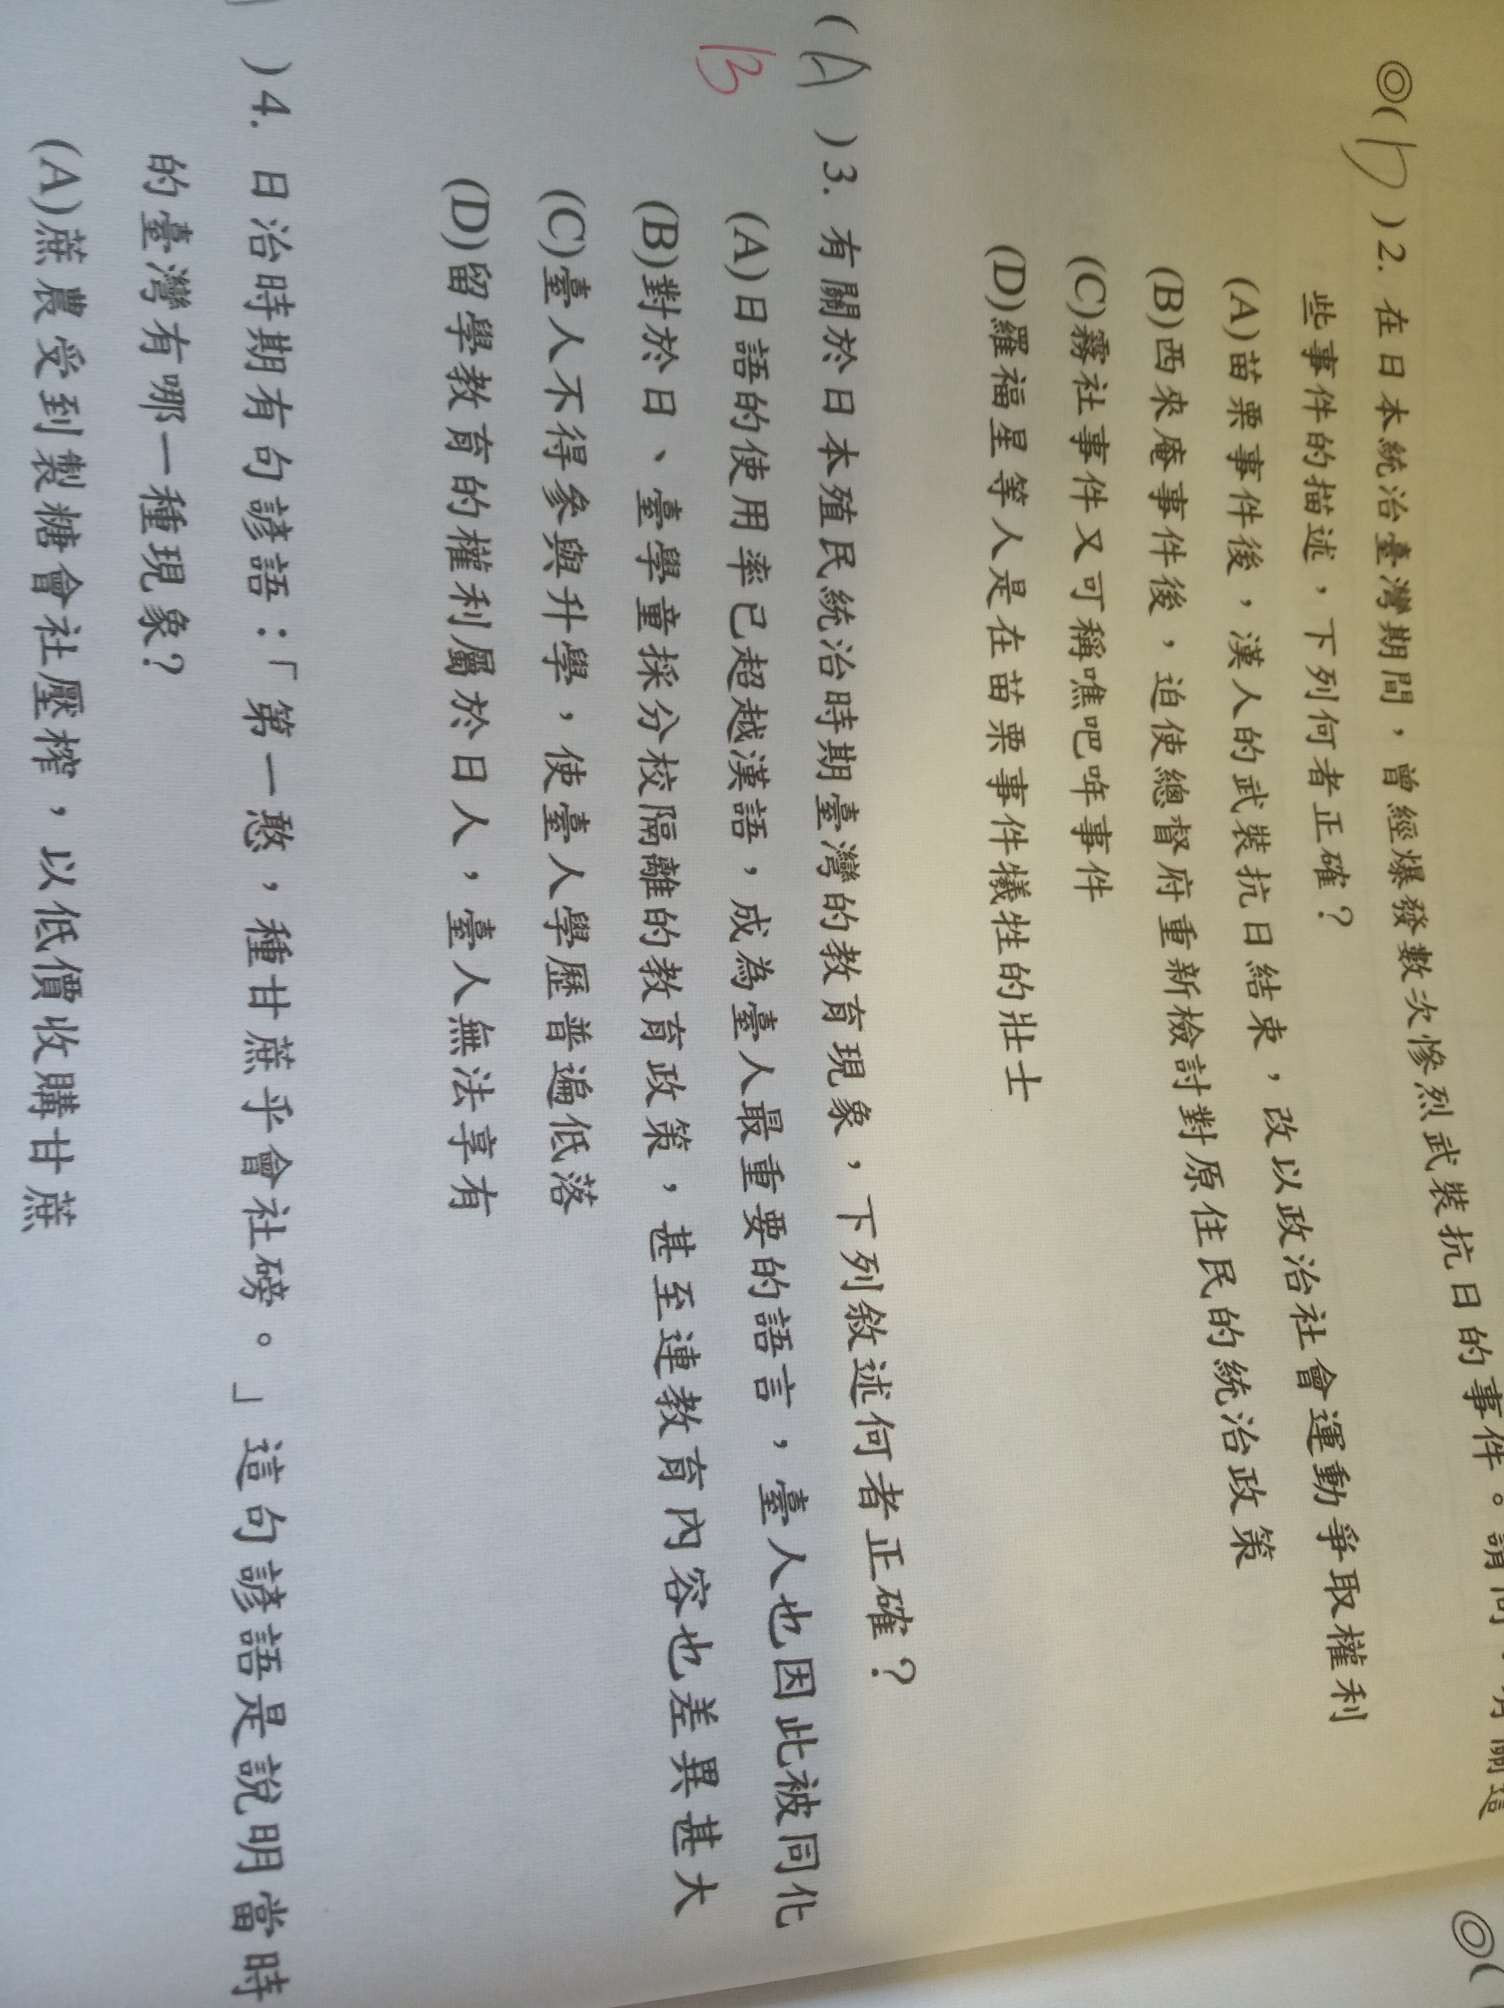 ◎( D )2. 在日本統治臺灣期間，曾經爆發數次慘烈武裝抗日的事件。請問
些事件的描述，下列何者正確？
(A)苗栗事件後，漢人的武裝抗日結束，改以政治社會運動爭取權利
(B)西來庵事件後，迫使總督府重新檢討對原住民的統治政策
(C)霧社事件又可稱噍吧哖事件
(D)羅福星等人是在苗栗事件犧牲的壯士
( A )3. 有關於日本殖民統治時期臺灣的教育現象，下列敘述何者正確？
B
(A)日語的使用率已超越漢語，成為臺人最重要的語言，臺人也因此被同化
(B)對於日、臺學童採分校隔離的教育政策，甚至連教育內容也差異甚大
(C)臺人不得參與升學，使臺人學歷普遍低落
(D)留學教育的權利屬於日人，臺人無法享有
)4. 日治時期有句諺語：「第一憨，種甘蔗乎會社磅。」這句諺語是說明當時
的臺灣有哪一種現象？
(A)蔗農受到製糖會社壓榨，以低價收購甘蔗
◎(